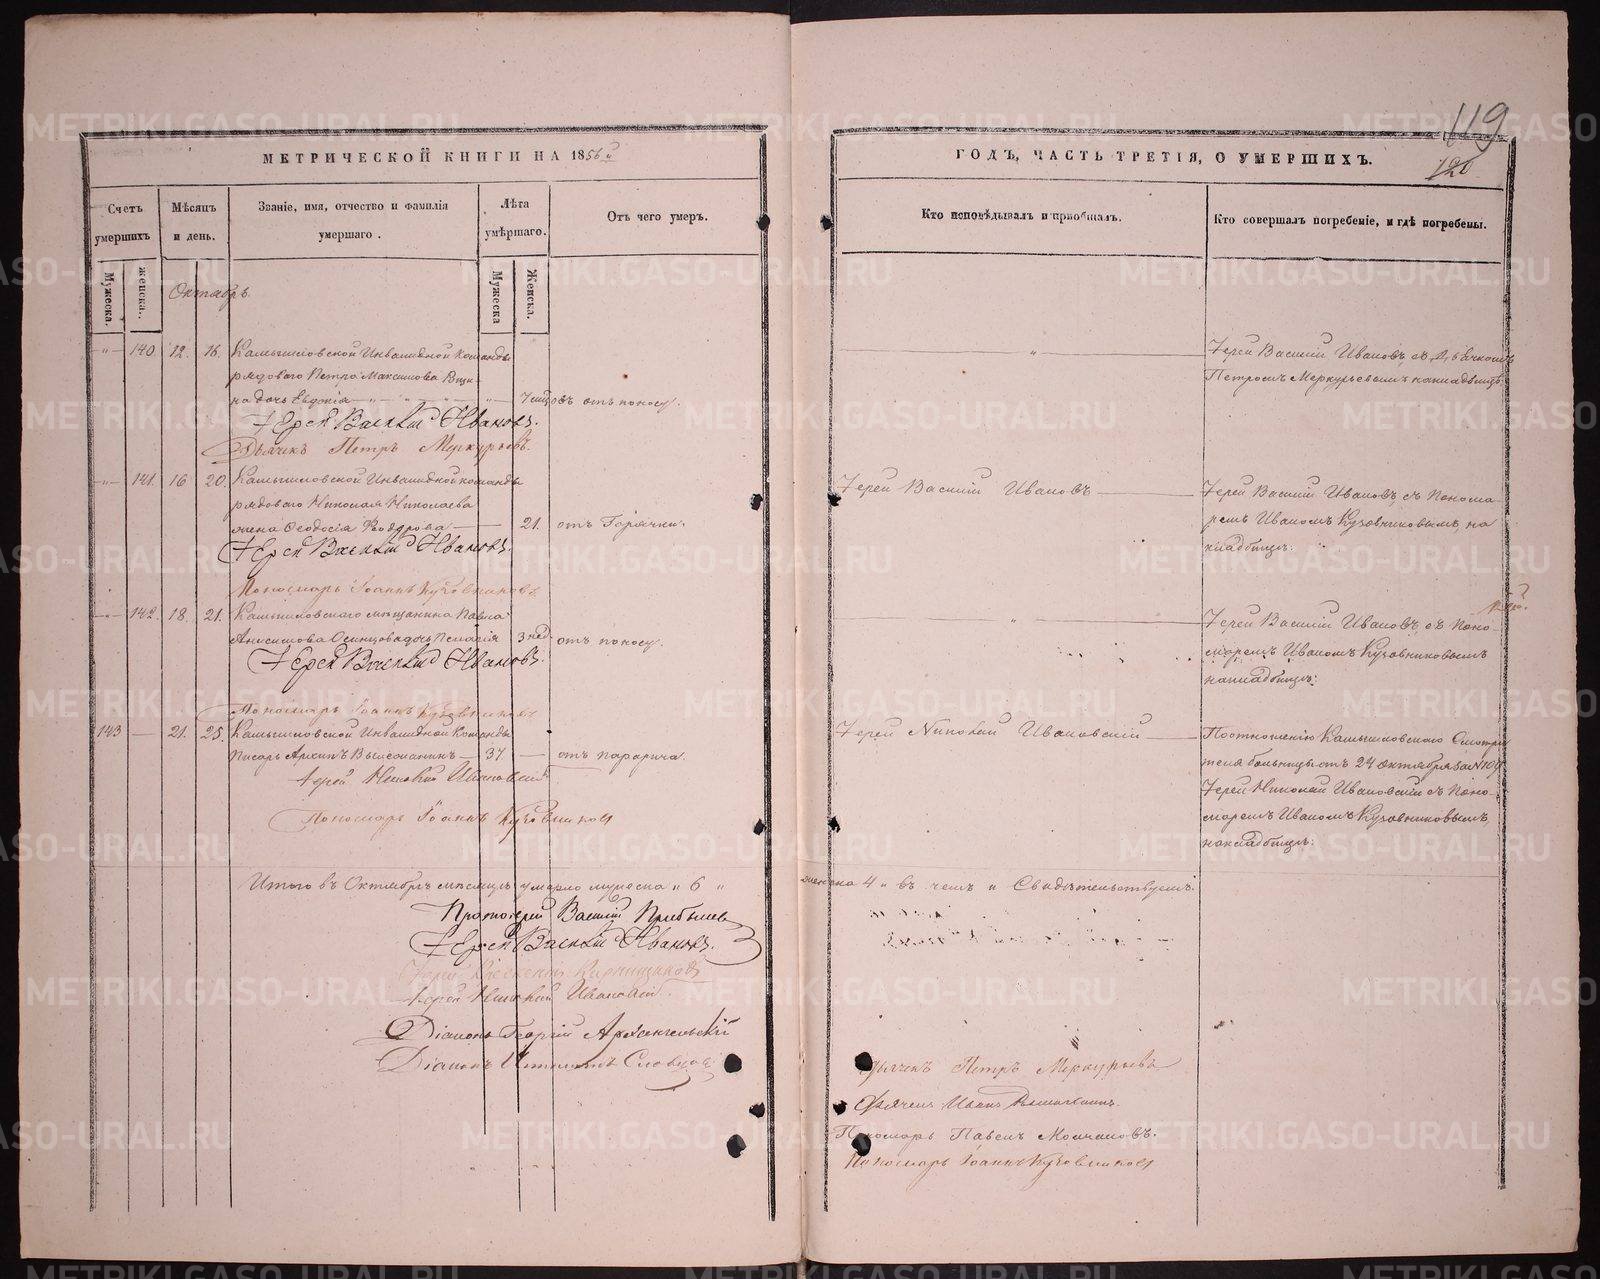 119
120
МЕТРИЧЕСКОЙ КНИГИ НА 1856й
ГОДЪ, ЧАСТЬ ТРЕТІЯ, О УМЕРШИХЪ.
Счетъ умершихъ
Мѣсяцъ и день.
Званіе, имя, отчество и фамилія умершаго.
Лѣта умѣршаго.
Отъ чего умеръ.
Кто исповѣдывалъ и приобщалъ.
Кто совершалъ погребеніе, и гдѣ погребены.
Мужеска.
женска.
Мужеска
Женска.
Октябрь
140. 12. 16. Камышловской Инвалидной команды
рядоваго Петра Максимова
на дочь Евдокія 7 мцовъ отъ поносу.
Іерей Василій Ивановъ съ Дьячкомъ
Петромъ Меркурьевымъ на кладбищѣ
Іерей Василій Ивановъ.
Дьячекъ Петръ Меркурьевъ.
141. 16 20. Камышловской Инвалидной команды
рядоваго Николая Николаева
жена Ѳеодосія 21. отъ Горячки.
Іерей Василій Ивановъ
Іерей Василій Ивановъ, съ Понома
ремъ Иваномъ Кузовниковымъ, на
кладбищѣ.
Іерей Василій Ивановъ.
Пономарь Іоаннъ Кузовниковъ
142. 18. 21. Камышловскаго мѣщанина Павла
Анисимова Осинцова дочь Пелагія 3 нед. отъ поносу.
Іерей Василій Ивановъ, съ Поно-
маремъ Иваномъ Кузовниковымъ
на кладбищѣ.
Іерей Василій Ивановъ.
Пономарь Іоаннъ Кузовниковъ
143 21. 25. Камышловской Инвалидной Команды
Писарь Архипъ 37. отъ паралича.
Іерей Николай Ивановскій
По отношенію Камышловскаго Смотри
теля больницы отъ 24 Октября за №109
Іерей Николай Ивановскій съ Поно-
маремъ Иваномъ Кузовниковымъ,
на кладбищѣ.
Іерей Николай Ивановскій
Пономарь Іоаннъ Кузовниковъ
Итого въ Октябрѣ мѣсяцѣ умерло мужеска " 6 " женска 4 " въ чемъ и Свидѣтельствуемъ.
Протоіерей Василій
Іерей Василій Ивановъ.
Іерей
Іерей Николай Ивановскій.
Діаконъ Георгій Архангельскій
Діаконъ Словцовъ
Дьячекъ Петръ Меркурьевъ
Дьячекъ Иванъ
Пономарь Павелъ Молчановъ.
Пономарь Іоаннъ Кузовниковъ
METRIKI.GASO-URAL.RU